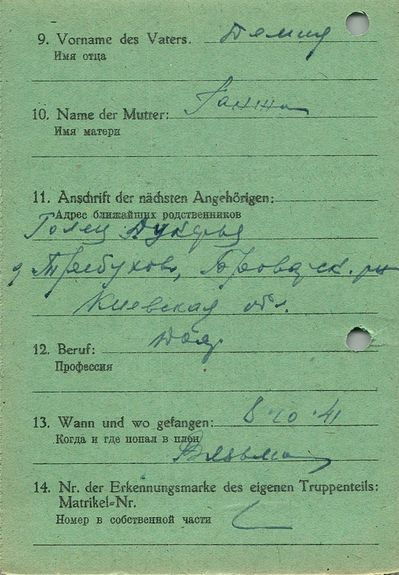 9. Vorname des Vaters. Демид
Имя отца
10. Name der Mutter: Ганна
Имя матери
11. Anschrift der nächsten Angehörigen:
Адрес ближайших родственников
Голец Лукерья
д Требухово, Броварск. рн
Киевская обл.
12. Beruf:
Профессия
13. Wann und wo gefangen: 8 10 41
Когда и где попал в плен
Вязьма
14. Nr. der Erkennungsmarke des eigenen Truppenteils:
Matrikel=Nr.
Номер в собственной части